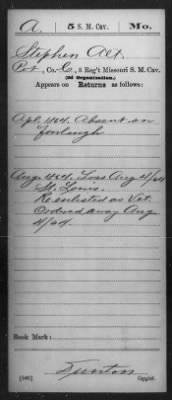 A. 5 S. M. Cav. Mo.
Stephen Alt
Pvt, Co. C, 5 Reg't Missouri S. M. Cav.
(2d Organization.)
Appears on Returns as follows:
Apl. /64. Absent on
Furlough
Aug. /64. Loss Aug 4/64
St. Louis.
Reenlisted as Vet.
Ordered away Aug
4/64.
Book Mark:
(546) Copyist.